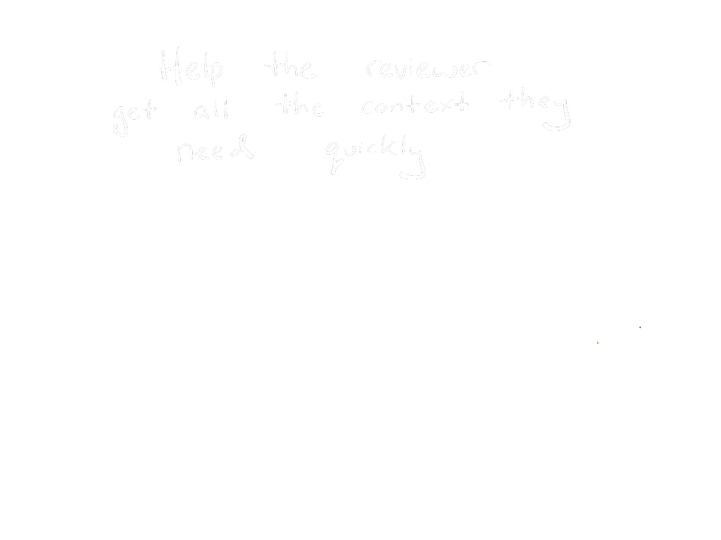 Help the reviewer
get all the context they
need quickly